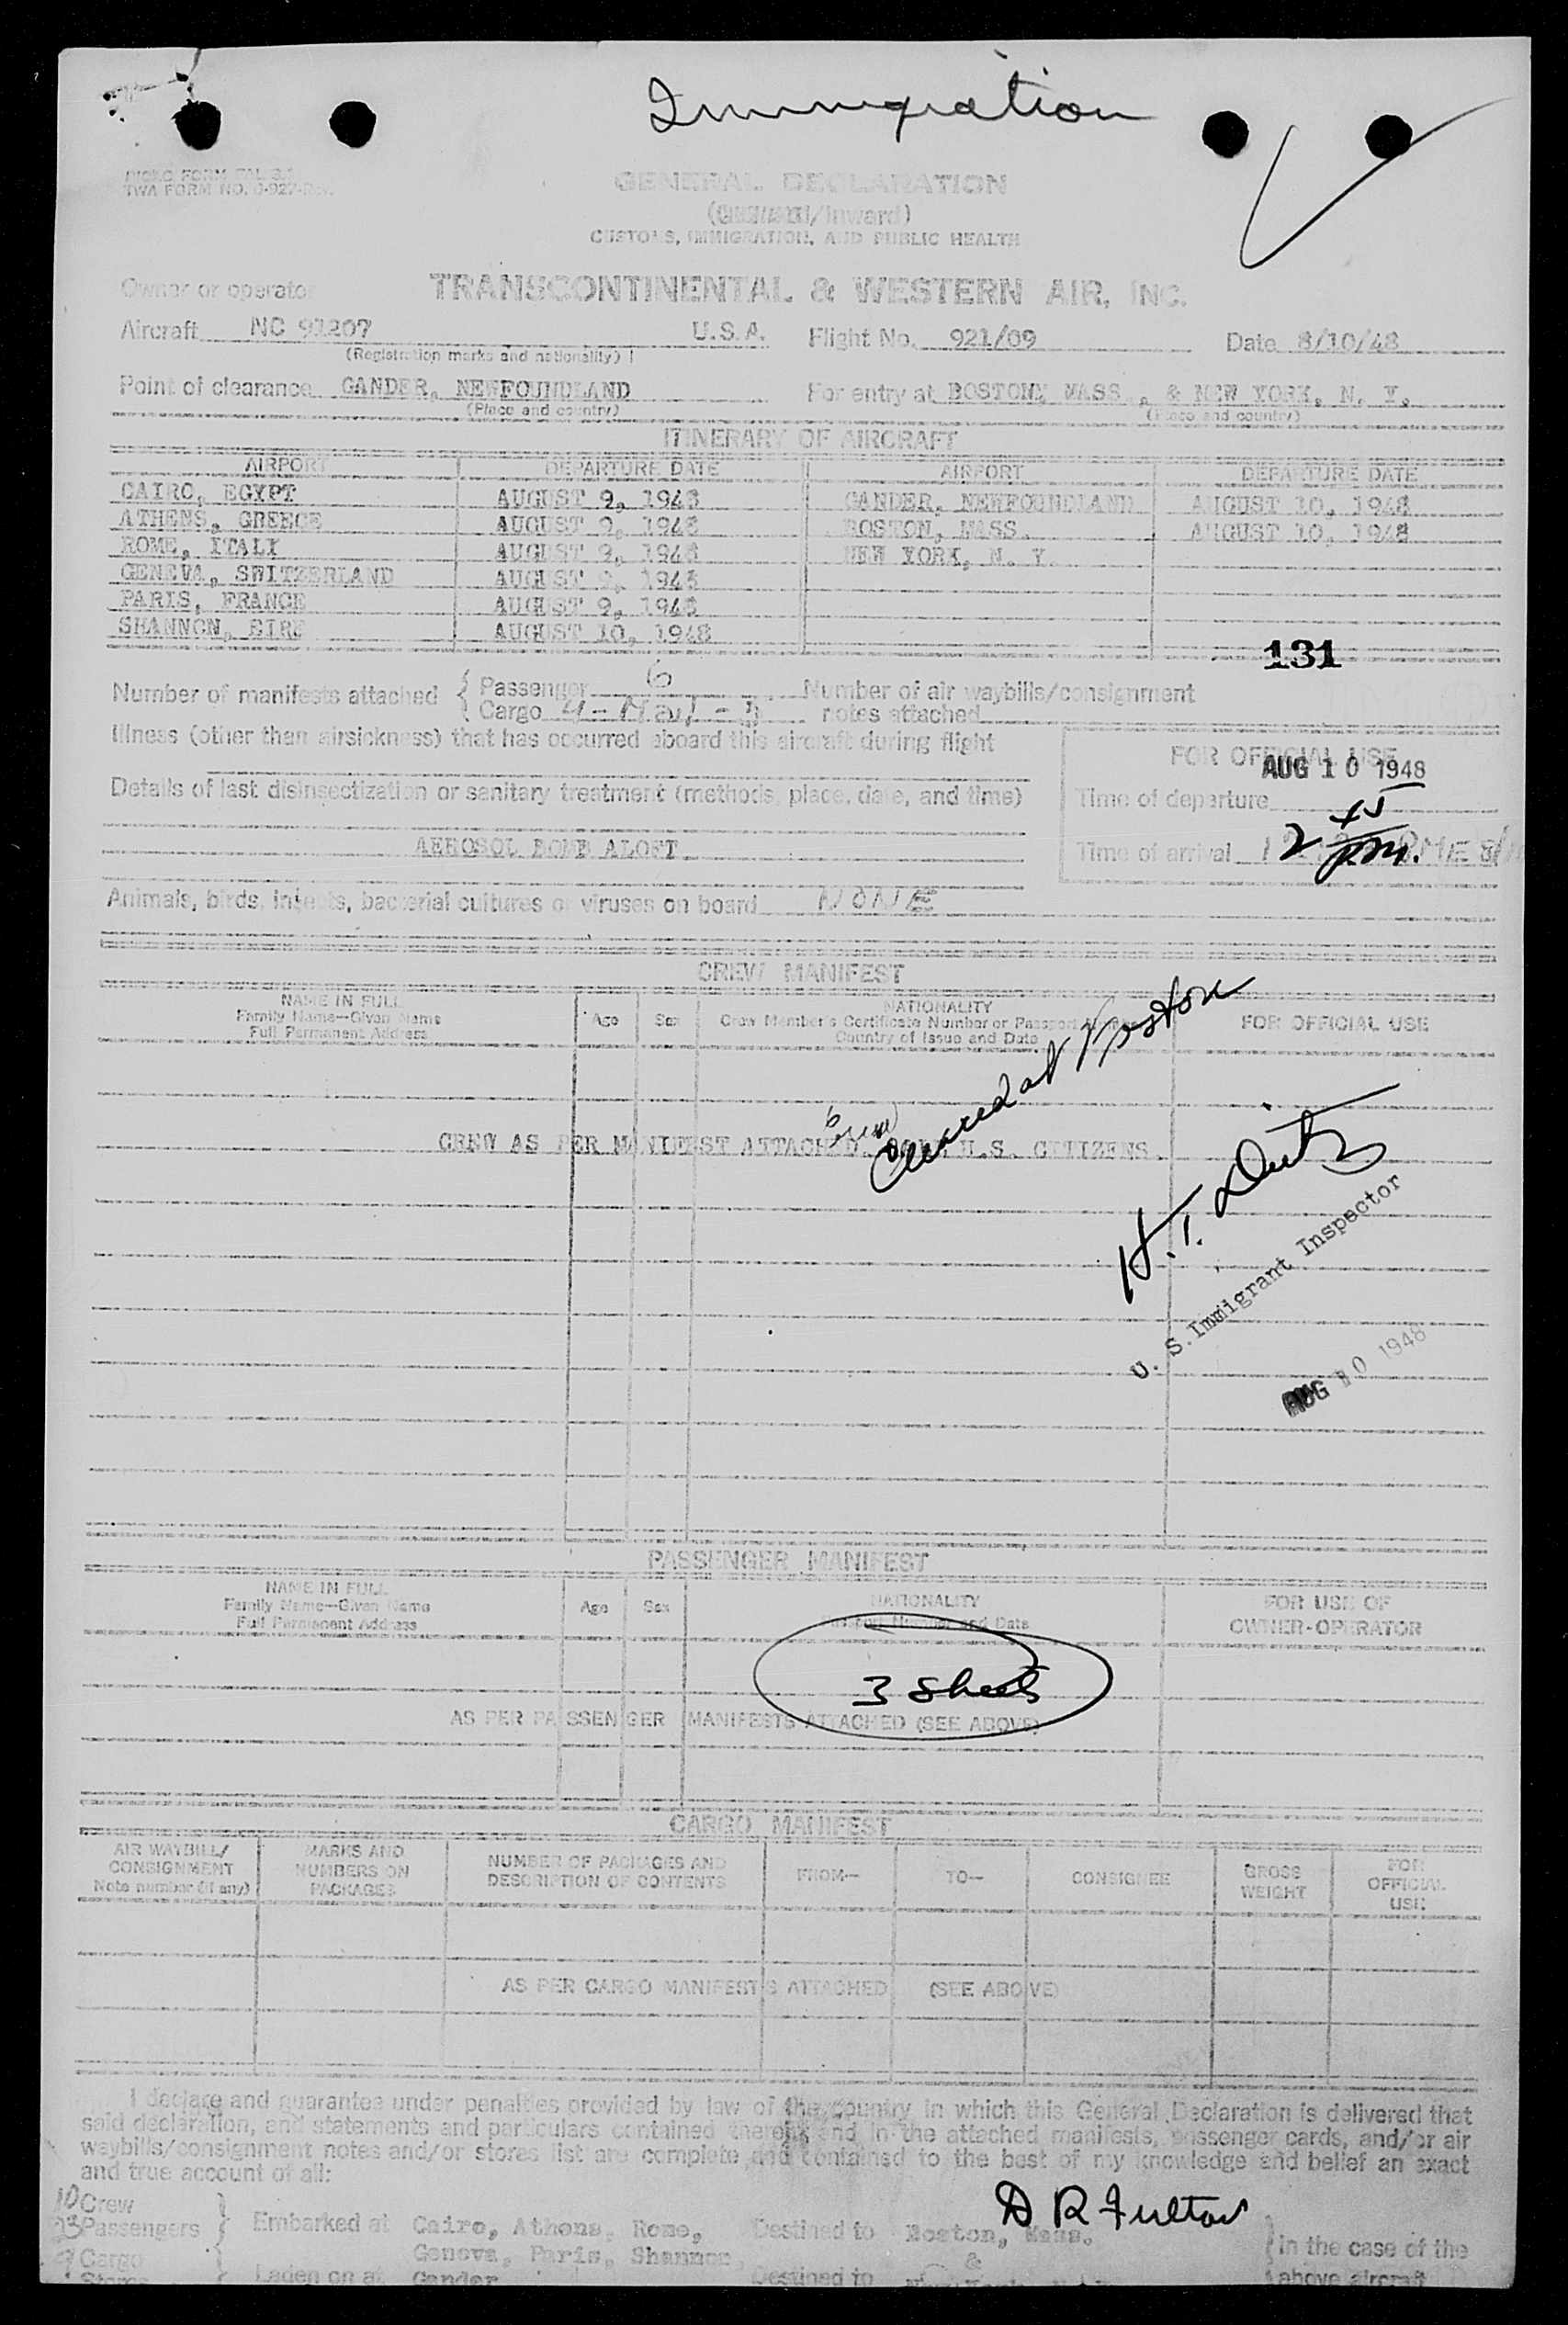 Immigration
TWA FORM NO.
GENERAL DECLARATION
(Outward/Inward)
CUSTOMS, IMMIGRATION, AND PUBLIC HEALTH
Owner or operator TRANSCONTINENTAL & WESTERN AIR, INC.
Aircraft NC 91207 U.S.A. Flight No. 921/09 Date 8/10/48
(Registration marks and nationality)
Point of clearance GANDER, NEWFOUNDLAND For entry at BOSTON, MASS., & NEW YORK, N. Y.
(Place and country) (Place and country)
ITINERARY OF AIRCRAFT
AIRPORT DEPARTURE DATE AIRPORT DEPARTURE DATE
CAIRO, EGYPT AUGUST 9, 1948 GANDER, NEWFOUNDLAND AUGUST 10, 1948
ATHENS, GREECE AUGUST 9, 1948 BOSTON, MASS. AUGUST 10, 1948
ROME, ITALY AUGUST 9, 1948 NEW YORK, N. Y.
GENEVA, SWITZERLAND AUGUST 9, 1948
PARIS, FRANCE AUGUST 9, 1948
SHANNON, EIRE AUGUST 10, 1948
131
Number of manifests attached { Passenger 6 Number of air waybills/consignment
Cargo 4-Mail-3 notes attached
Illness (other than airsickness) that has occurred aboard this aircraft during flight
FOR OFFICIAL USE
AUG 10 1948
Details of last disinsectization or sanitary treatment (methods, place, date, and time)
Time of departure
AEROSOL BOMB ALOFT
Time of arrival 2 45 P.M.
Animals, birds, insects, bacterial cultures or viruses on board NONE
CREW MANIFEST
NAME IN FULL
Family Name—Given Name
Full Permanent Address
Age Sex
NATIONALITY
Crew Member's Certificate Number or Passport Number
Country of Issue and Date
FOR OFFICIAL USE
Crew
Cleared at Boston
CREW AS PER MANIFEST ATTACHED. ALL U.S. CITIZENS.
H. T.
U. S. Immigrant Inspector
AUG 10 1948
PASSENGER MANIFEST
NAME IN FULL
Family Name—Given Name
Full Permanent Address
Age Sex
NATIONALITY
Passport Number and Date
FOR USE OF
OWNER-OPERATOR
3 Sheets
AS PER PASSENGER MANIFESTS ATTACHED (SEE ABOVE)
CARGO MANIFEST
AIR WAYBILL/
CONSIGNMENT
Note number (if any)
MARKS AND
NUMBERS ON
PACKAGES
NUMBER OF PACKAGES AND
DESCRIPTION OF CONTENTS
FROM—
TO—
CONSIGNEE
GROSS
WEIGHT
FOR
OFFICIAL
USE
AS PER CARGO MANIFESTS ATTACHED (SEE ABOVE)
I declare and guarantee under penalties provided by law of the country in which this General Declaration is delivered that
said declaration, and statements and particulars contained therein and in the attached manifests, passenger cards, and/or air
waybills/consignment notes and/or stores list are complete and contained to the best of my knowledge and belief an exact
and true account of all:
D R Fulton
10 Crew
Passengers } Embarked at Cairo, Athens, Rome, Destined to Boston, Mass.
Geneva, Paris, Shannon & } In the case of the
Cargo
Stores } Laden on at Gander Destined to above aircraft